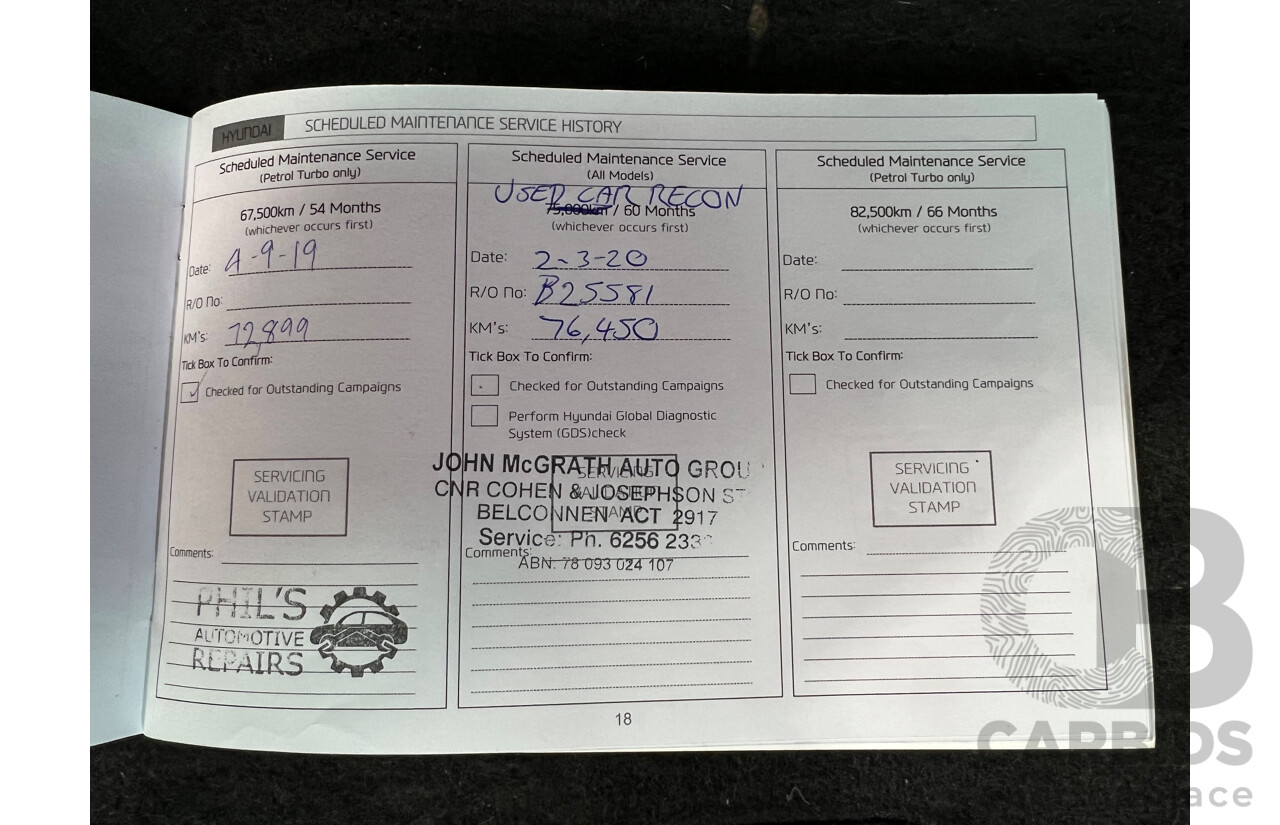 HYUNDAI SCHEDULED MAINTENANCE SERVICE HISTORY
Scheduled Maintenance Service
(Petrol Turbo only)
67,500km / 54 Months
(whichever occurs first)
Date: 4-9-19
R/O No:
KM's: 72,899
Tick Box To Confirm:
Checked for Outstanding Campaigns
SERVICING
VALIDATION
STAMP
Comments:
PHIL'S
AUTOMOTIVE
REPAIRS
Scheduled Maintenance Service
(All Models)
USED CAR RECON
75,000km / 60 Months
(whichever occurs first)
Date: 2-3-20
R/O No: B25581
KM's: 76,450
Tick Box To Confirm:
Checked for Outstanding Campaigns
Perform Hyundai Global Diagnostic
System (GDS)check
JOHN McGRATH AUTO GROU
SERVICING
CNR COHEN & JOSEPHSON ST
VALIDATION
BELCONNEN ACT 2917
STAMP
Service: Ph. 6256 233
Comments:
ABN: 78 093 024 107
Scheduled Maintenance Service
(Petrol Turbo only)
82,500km / 66 Months
(whichever occurs first)
Date:
R/O No:
KM's:
Tick Box To Confirm:
Checked for Outstanding Campaigns
SERVICING
VALIDATION
STAMP
Comments:
18
CB
CARBIDS
ace